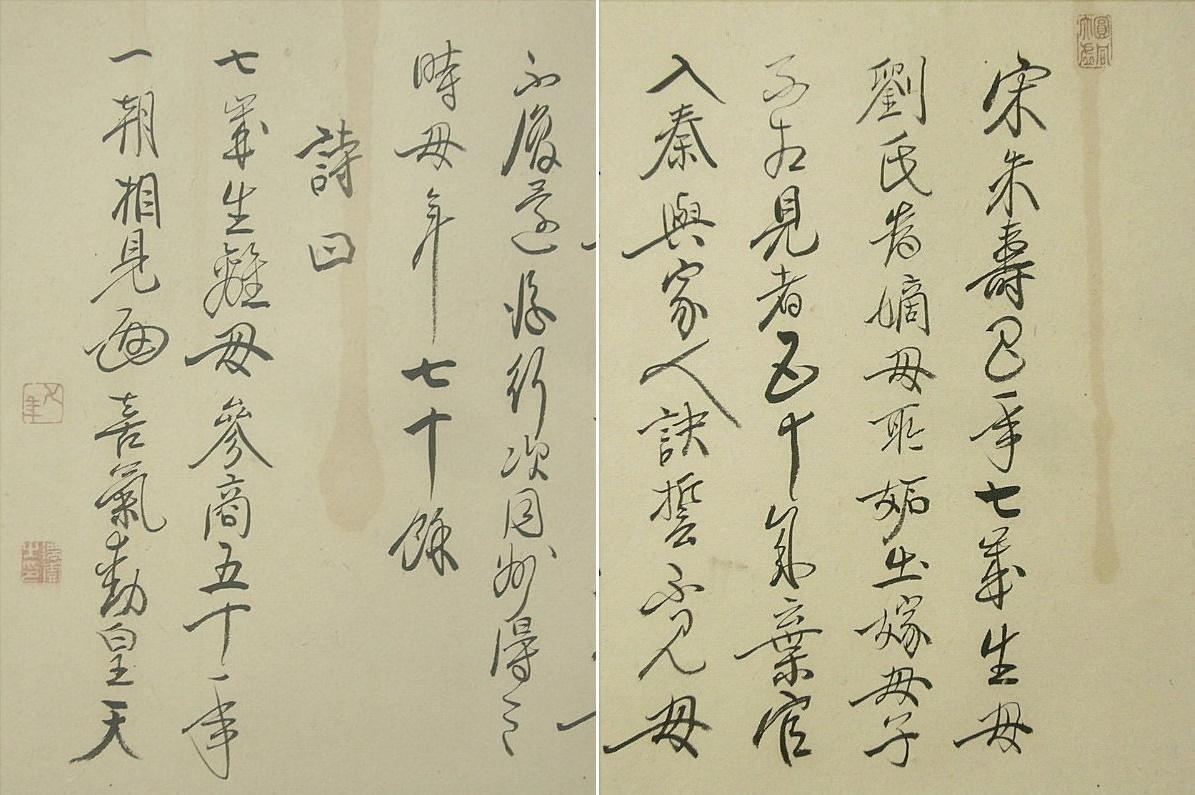 圓同太虛
宋朱壽昌年七歲生母
劉氏為嫡母所妬出嫁母子
不相見者五十棄官
入秦與家人訣誓不見母
不復還後行次同州得之
時母年七十餘
詩曰
七歲生離母參商五十年
一朝相見面喜氣動皇天